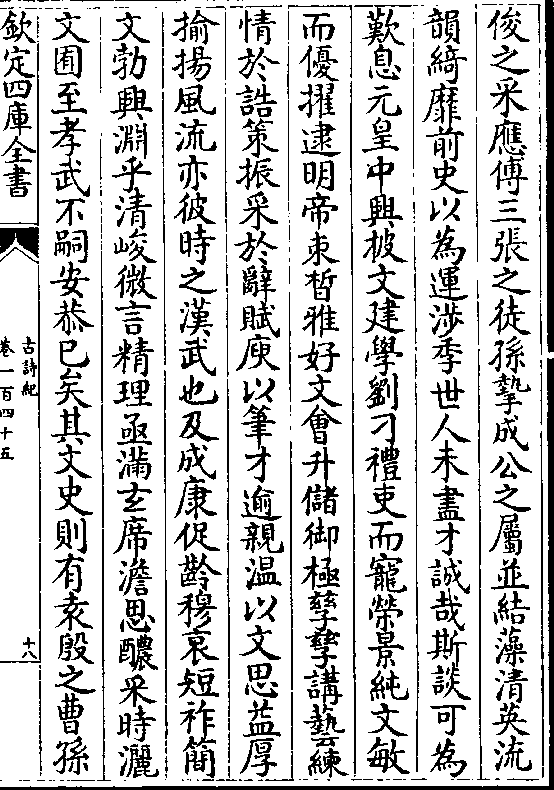 俊之采應傅三張之徒孫摯成公之屬並結藻清英流
韻綺靡前史以為運涉季世人未盡才誠哉斯談可為
歎息元皇中興披文建學劉刁禮吏而寵榮景純文敏
而優擢逮明帝束晳雅好文會升儲御極孳孳講藝練
情於誥策振采於辭賦庾以筆才逾親溫以文思益厚
揄揚風流亦彼時之漢武也及成康促齡穆哀短祚簡
文勃興淵乎清峻微言精理亟滿玄席澹思醲采時灑
文囿至孝武不嗣安恭已矣其文史則有袁殷之曹孫
欽定四庫全書
古詩紀
卷一百四十五
十八